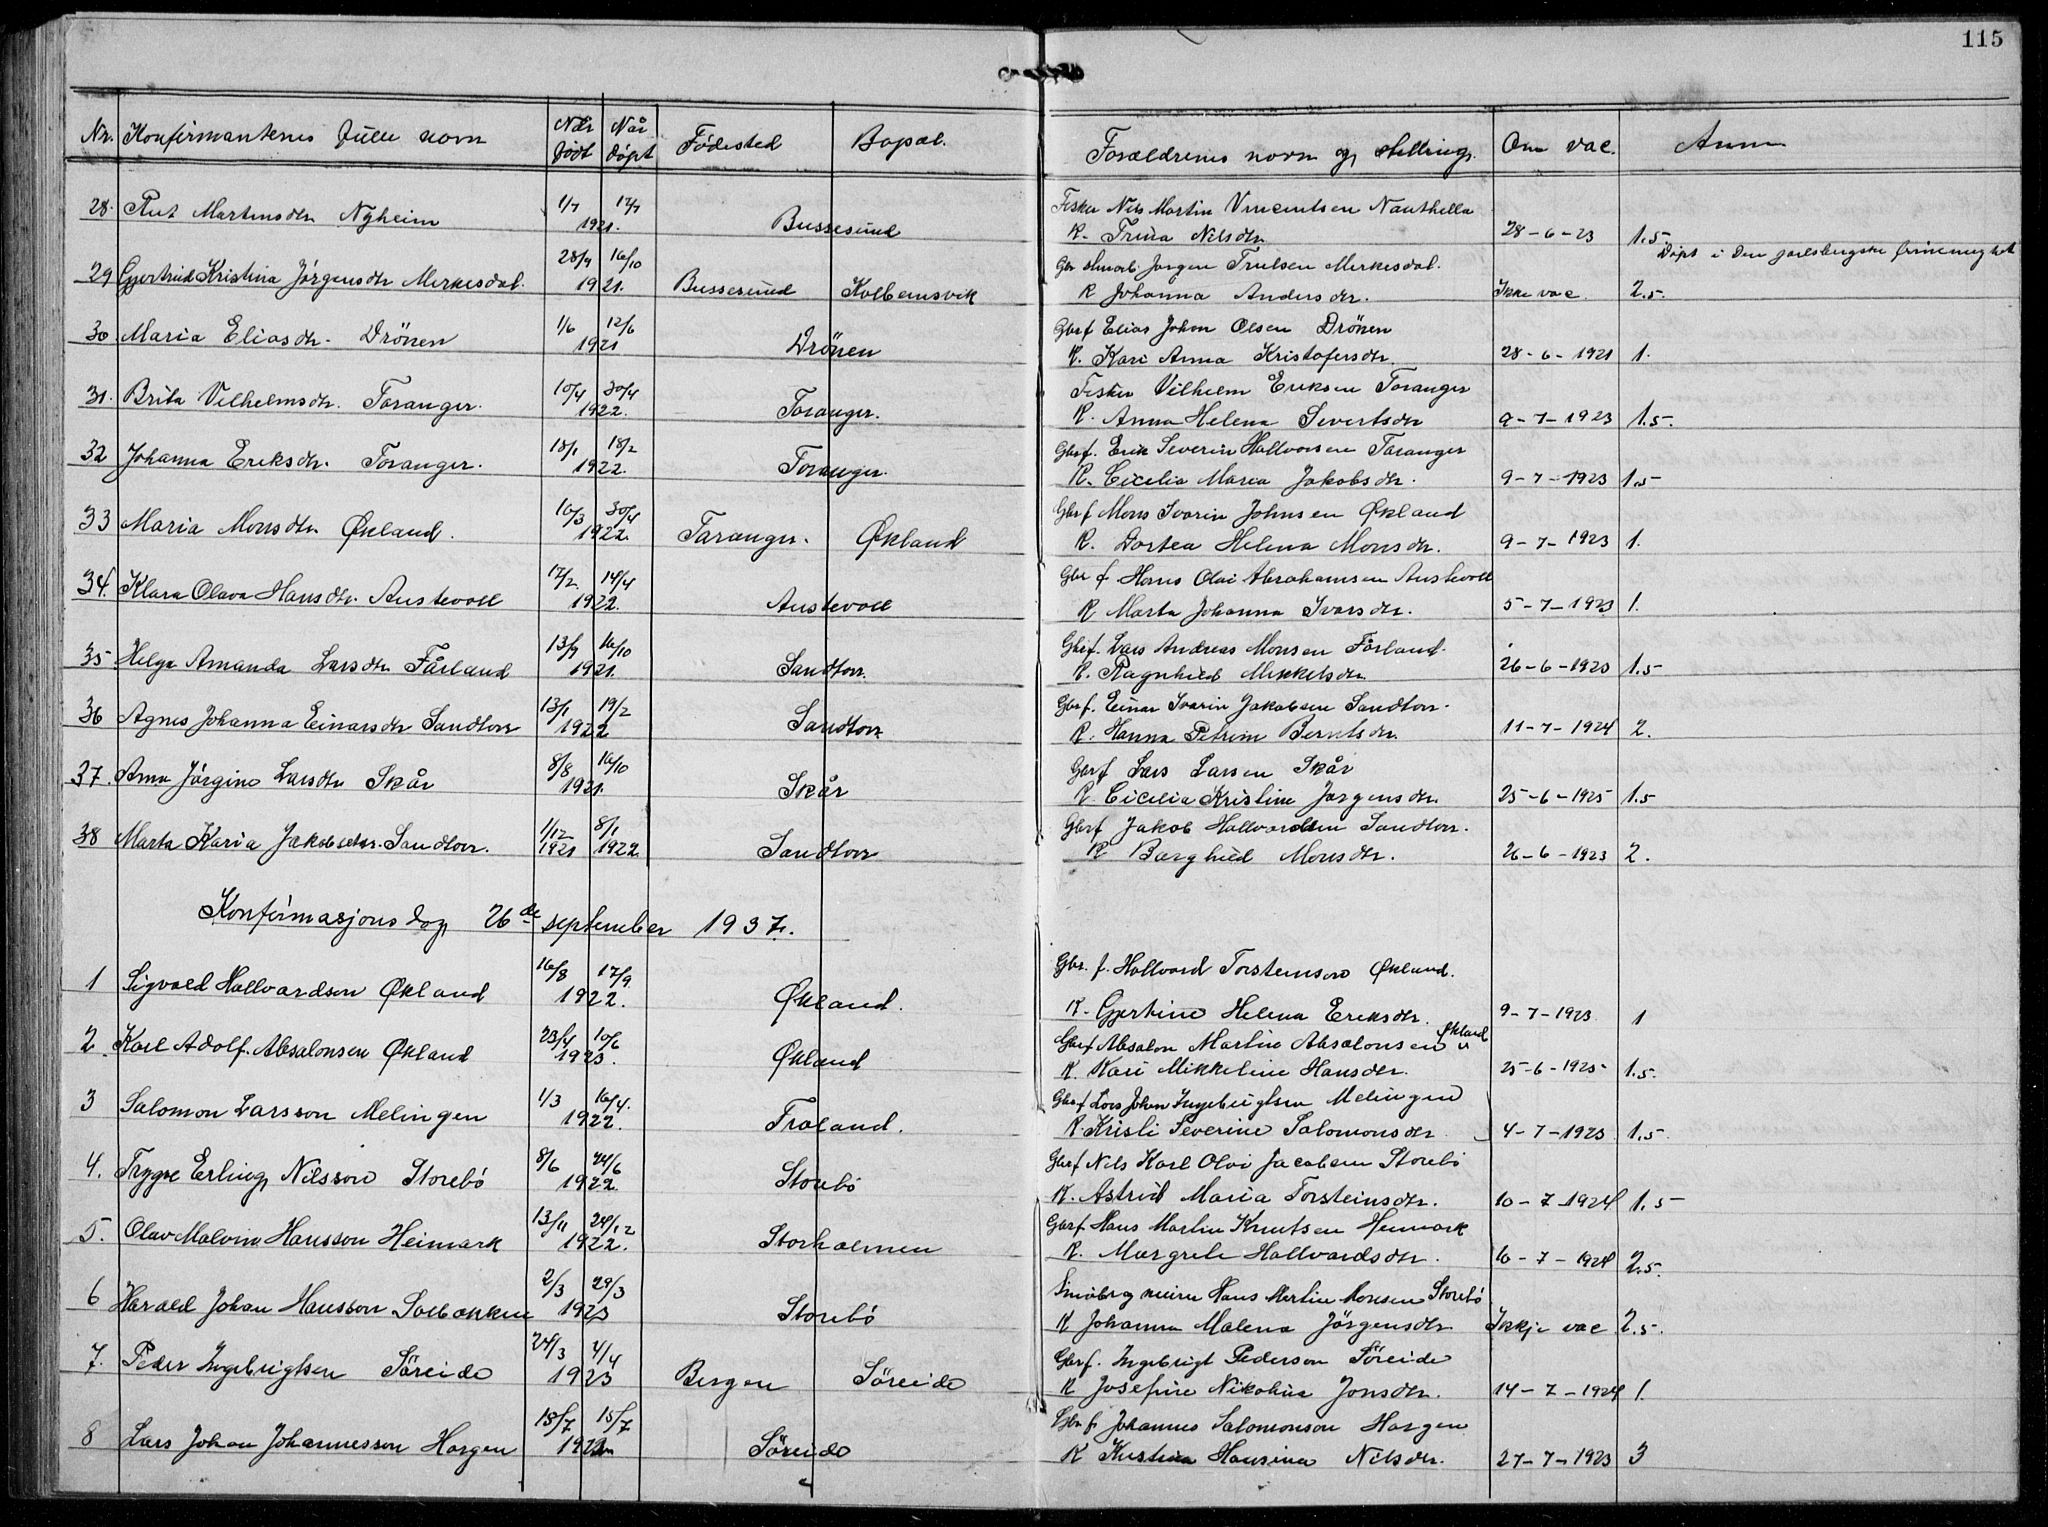 115
Nr. Konfirmantenes fulle navn Når født Når døpt Fødested Bopæl. Forældrenes navn og stilling. Om vac. Anm
Fisker Nils Martin Vincentsen Nauthella
28. Rut Martinsdtr Nyheim 1/7 17/7 1921. Bussesund K. Trina Nilsdtr 28-6-23 1.5
Døpt i Den jarlsbergske frimenighet
Jørgen Trulsen Merkesdal.
29 Gjertrud Kristina Jörgensdtr Merkesdal. 28/9 16/10 1921. Bussesund Kolbeinsvik K Johanna Andersdtr. Ikke vac. 2.5.
Gbrf Elias Johan Olsen Drönen
30 Maria Eliasdtr. Drönen 1/6 12/6 1921 Drönen K. Kari Anna Kristofersdtr 28-6-1921 1.
Fisker Vilhelm Eriksen Toranger
31. Brita Vilhelmsdtr. Toranger. 10/4 30/4 1922. Toranger. K. Anna Helena Sivertsdtr 9-7-1923 1.5.
Gbrf. Erik Severin Hallvorsen Taranger
32 Johanna Eriksdtr. Toranger. 18/1 18/2 1922. Toranger. K. Cicelia Maria Jakobsdtr. 9-7-1923 1.5
Gbrf Mons Ivarin Johnsen Økland
33 Maria Monsdtr Økland. 10/3 30/4 1922. Taranger. Økland K. Dortea Helena Monsdtr. 9-7-1923 1.
Gbr f Hans Olai Abrahamsen Austevoll
34. Klara Olava Hansdtr. Austevoll 17/2 14/4 1922. Austevoll K Marta Johanna Ivarsdtr. 5-7-1923 1.
Gbrf. Lars Andreas Monsen Fårland.
35 Helga Amanda Larsdtr Fårland 13/9 16/10 1921. Sandtorv K. Ragnhild Mikkelsdtr 26-6-1923 1.5
Gbrf. Einar Ivarin Jakobsen Sandtorv.
36 Agnes Johanna Einarsdtr Sandtorv 13/1 19/2 1922 Sandtorv K. Hanna Petrine Berntsdtr. 11-7-1924 2.
Gbrf Lars Larsen Skår
37. Anna Jörgine Larsdtr Skår 8/8 16/10 1921. Skår K. Cicelia Kristine Jørgensdtr. 25-6-1925 1.5
Gbrf Jakob Hallvardsen Sandtorv.
38 Marta Karia Jakobsdtr. Sandtorv. 1/12 1921 8/1 1922 Sandtorv K Borghild Monsdtr. 26-6-1923 2.
Konfirmasjonsdag 26de september 1937.
Gbr. f. Hallvard Torsteinsen Økland.
1 Sigvald Hallvardson Økland 16/8 17/9 1922. Økland. K. Gjertine Helena Eriksdtr. 9-7-1923 1
Gbrf Absalon Martin Absalonsen Økland
2 Karl Adolf. Absalonsen Økland 23/4 10/6 1923. Økland K. Kari Mikkeline Hansdtr. 25-6-1925 1.5.
Gbrf Lars Johan Ingebrigtsen Melingen
3 Salomon Larsson Melingen 1/3 16/4. 1922. Troland. K. Kristi Severine Salomonsdtr 4-7-1923 1.5.
Gbrf Nils Karl Olai Jacobsen Storebö
4. Trygve Erling Nilsson Storebö 8/6 24/6 1922. Storebö K. Astrid Maria Torsteinsdtr. 10-7-1924 1.5
Gbrf Hans Martin Knutsen Heimark
5. Olav Malvin Hansson Heimark 13/11 24/12 1922. Storholmen K. Margrete Hallvardsdtr. 10-7-1924 2.5.
Hans Martin Monsen Storebö
6 Harald Johan Hansson Solbakken 2/3 29/3 1923 Storebö K Johanna Malena Jörgensdtr Ikkje vac 2.5.
Gbrf. Ingebrigt Pederson Söreide
7. Peder Ingebrigtsen Söreide 24/3 4/4 1923 Bergen Söreide K Josefine Nikolina Jonsdtr. 14-7-1924 1.
Gbr f Johannes Salomonson Horgen
8 Lars Johan Johannesson Horgen 15/7 15/7 1922 Söreide K Kristina Hansina Nilsdtr. 27-7-1923 3